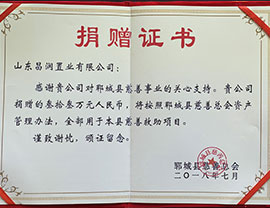 捐赠证书
山东昌润置业有限公司：
感谢贵公司对郓城县慈善事业的关心支持。贵公司
捐赠的叁拾叁万元人民币，将按照郓城县慈善总会资产
管理办法，全部用于本县慈善救助项目。
谨致谢忱，颁证留念。
郓城县慈善总会
二〇一八年七月